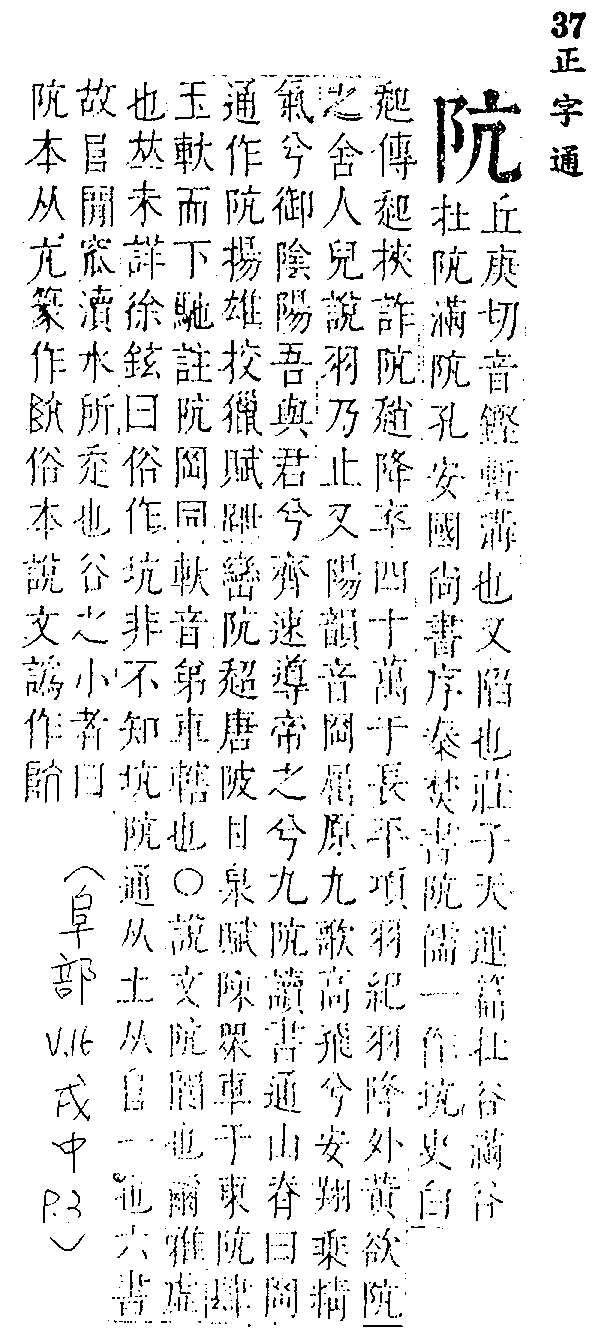 37正字通
阬
丘庚切音鏗塹溝也又陷也莊子天運篇在谷滿谷
在阬滿阬孔安國尚書序秦焚書阬儒一作坑史白
起傳起挾詐阬趙降卒四十萬于長平項羽紀羽降外黃欲阬
之舍人兒說羽乃止又陽韻音岡屈原九歌高飛兮安翔乘精
氣兮御陰陽吾與君兮齊速導帝之兮九阬讀書通山脊曰岡
通作阬揚雄校獵賦跐巒阬超唐陂甘泉賦陳眾車于東阬肆
玉軑而下馳註阬岡同軑音弟車轄也○說文阬閬也爾雅虛
也𠀤未詳徐鉉曰俗作坑非不知坑阬通从土从𨸏一也六書
故𨸏閒窊瀆水所也谷之小者曰
阬本从亢篆作俗本說文譌作
（阜部 V.16 戌中 P.3）